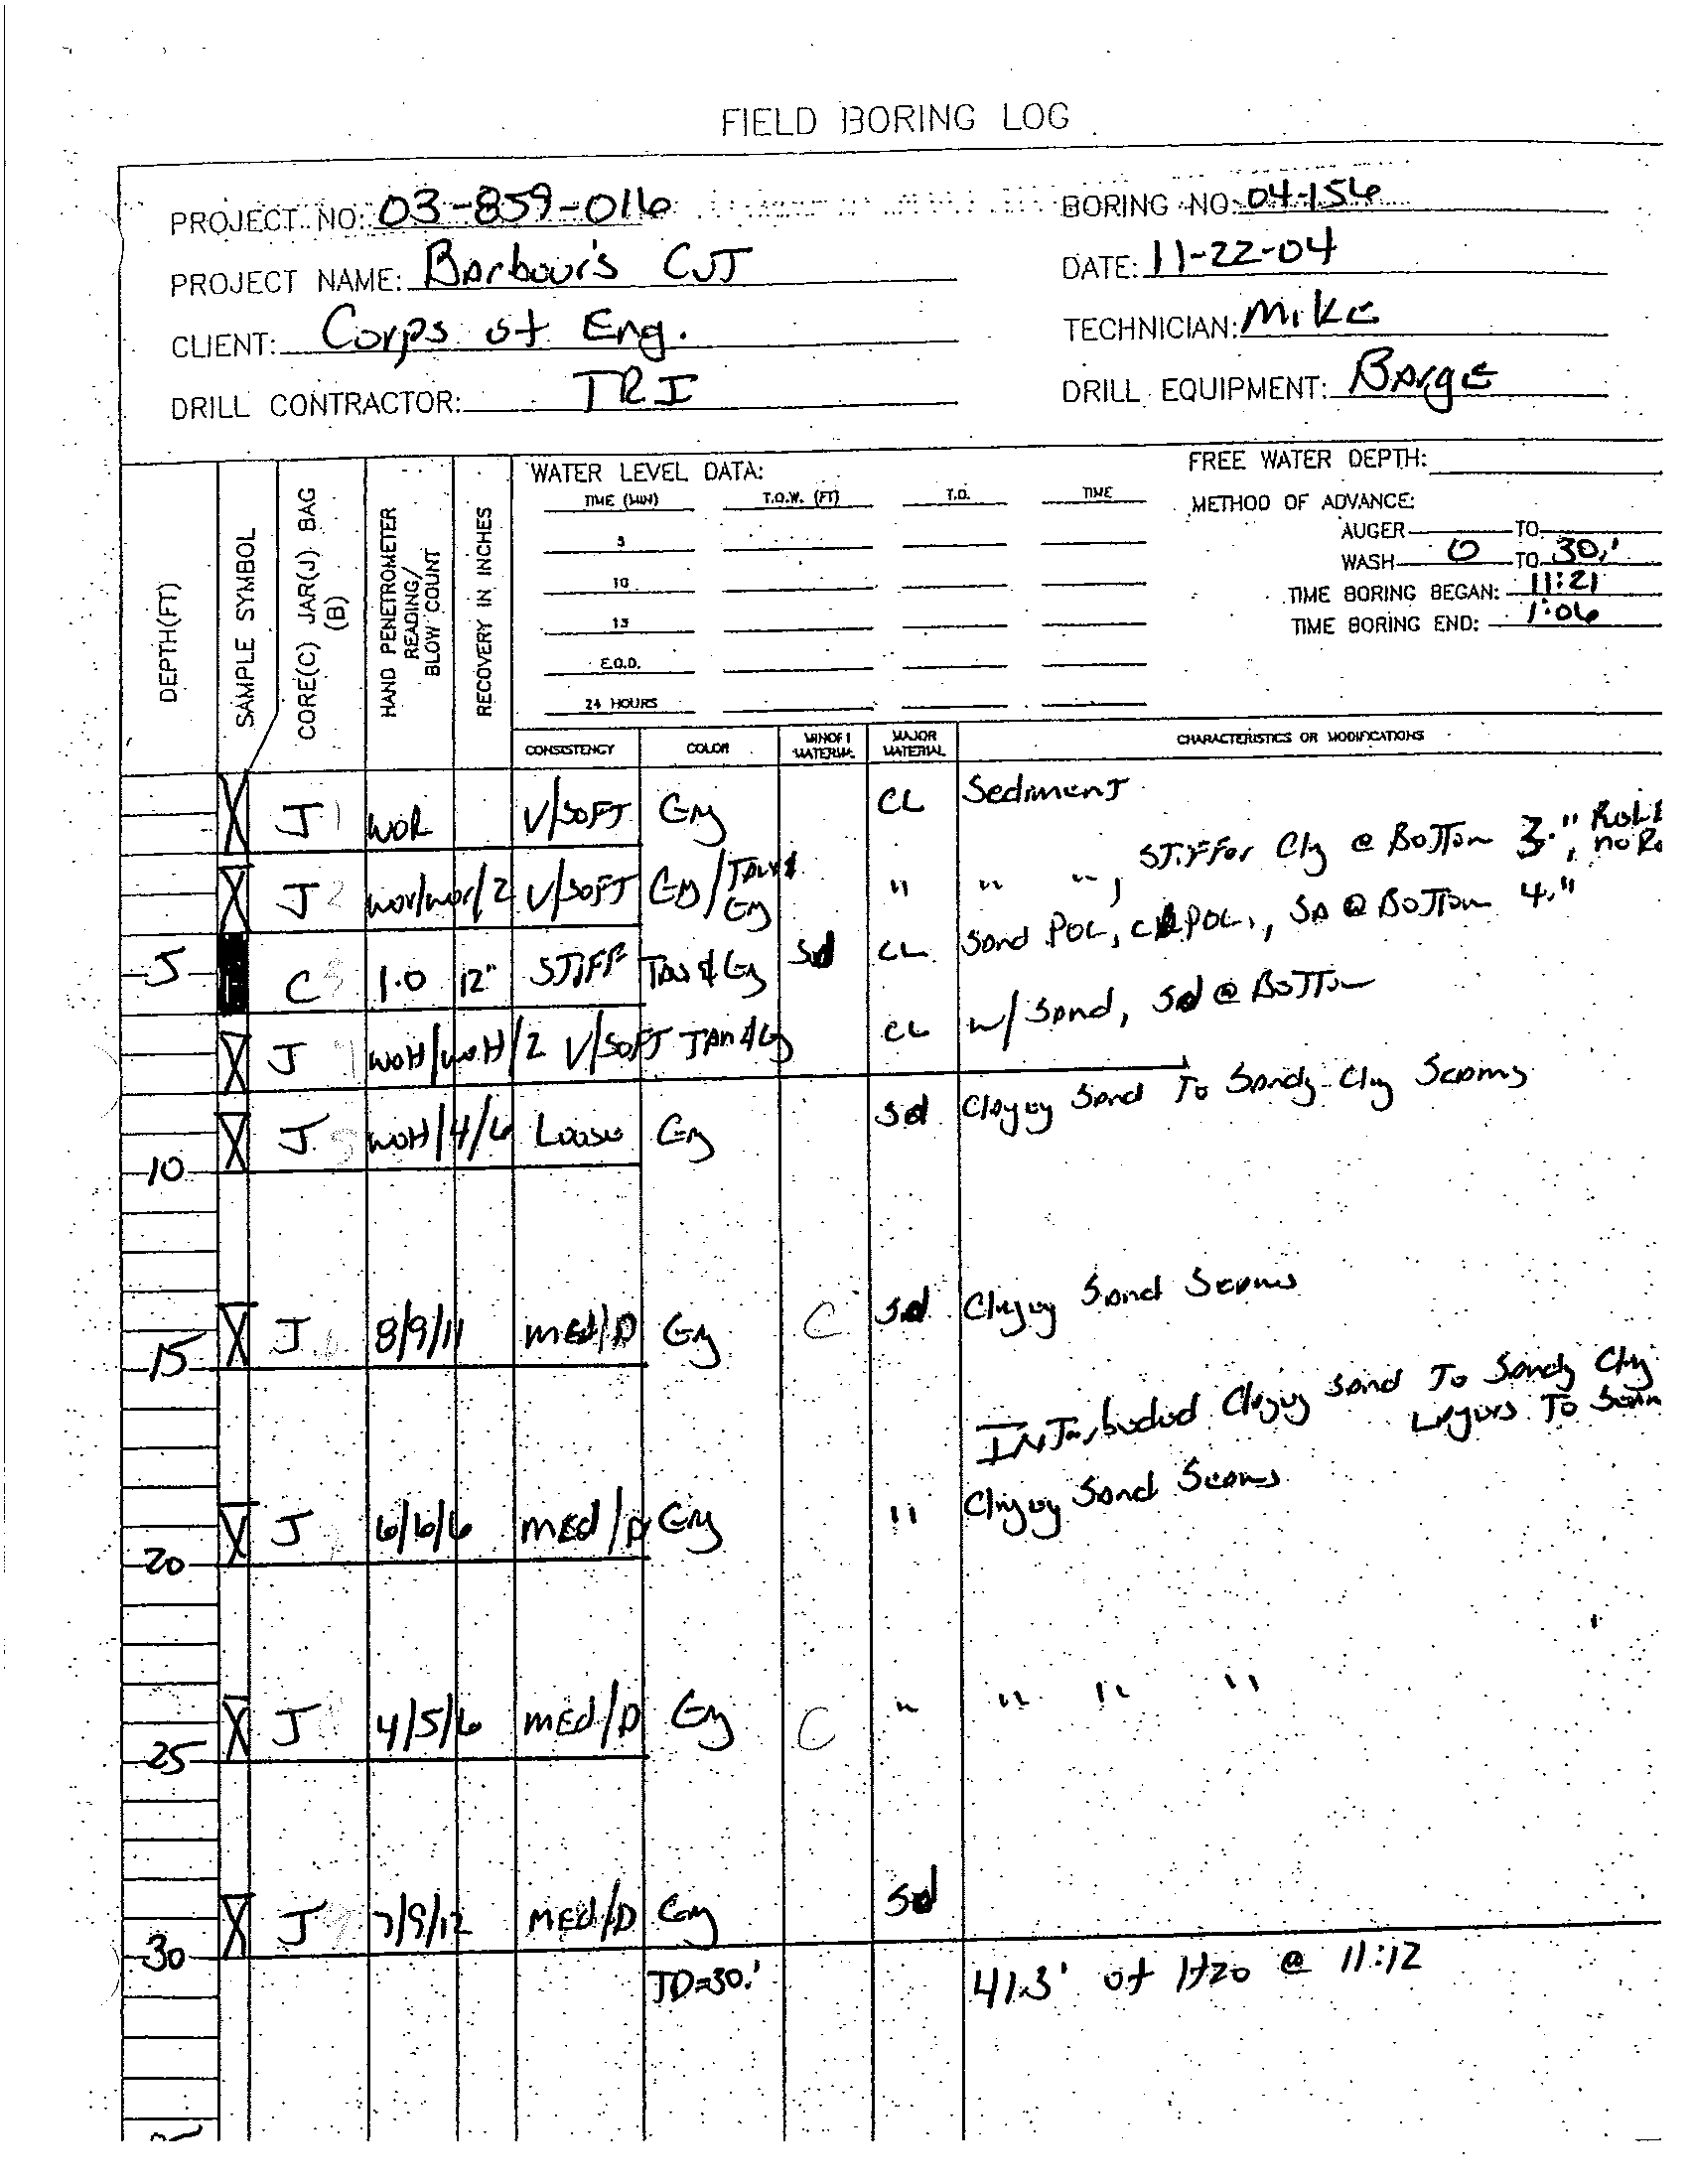 FIELD BORING LOG
PROJECT NO: 03-859-016
BORING NO: 04-156
PROJECT NAME: Barbour's CUT
DATE: 11-22-04
CLIENT: Corps of Eng.
TECHNICIAN: Mike
DRILL CONTRACTOR: TRI
DRILL EQUIPMENT: Barge
DEPTH(FT)
SAMPLE SYMBOL
CORE(C) JAR(J) BAG (B)
HAND PENETROMETER READING/ BLOW COUNT
RECOVERY IN INCHES
WATER LEVEL DATA:
TIME (MIN) T.O.W. (FT) T.D. TIME
5
10
15
E.O.D.
24 HOURS
FREE WATER DEPTH:
METHOD OF ADVANCE:
AUGER TO
WASH 0 TO 30.'
TIME BORING BEGAN: 11:21
TIME BORING END: 1:06
CONSISTENCY COLOR MINOR MATERIAL MAJOR MATERIAL CHARACTERISTICS OR MODIFICATIONS
J 1 WOR V/SOFT Gry CL Sediment
J 2 wor/wor/2 V/SOFT Gry/TAN & Gry " " ", STiffer Cly @ BoTTom 3.",
5 C 3 1.0 12" STIFF TAN & Gry Sd CL Sand POC, CL POC., SA @ BoTTom 4."
J 4 WOH/WOH/2 V/SOFT TAN & Gry CL w/ Sand, Sd @ BoTTom
10 J 5 WOH/4/6 Loose Gry Sd Clayey Sand To Sandy Cly Seams
15 J 6 8/9/11 med/D Gry C Sd Clayey Sand Seams
INTerbeded Clayey Sand To Sandy Cly
Layers To
20 J 6/6/6 med/D Gry " Clayey Sand Seams
25 J 4/5/6 med/D Gry C " " " "
30 J 9 7/9/12 MEd/D Gry Sd
TD=30.' 41.3' of H20 @ 11:12